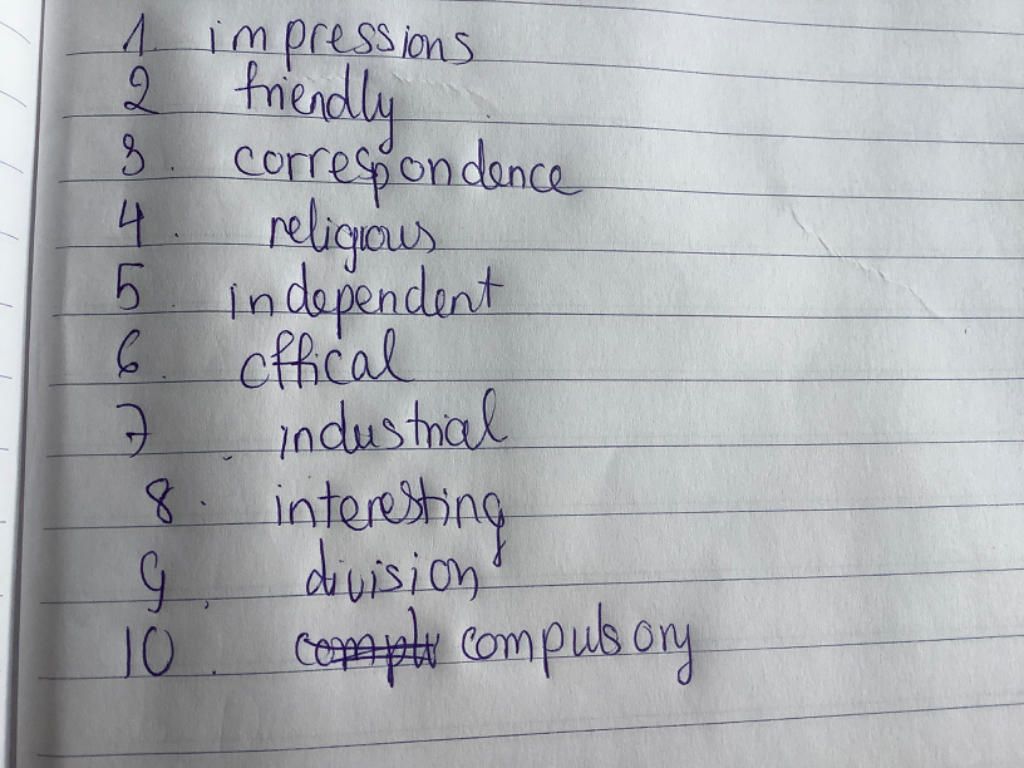 1. impressions
2 friendly
3. correspondence
4. religious
5. independent
6. offical
7. industrial
8. interesting
9. division
10. compulsory